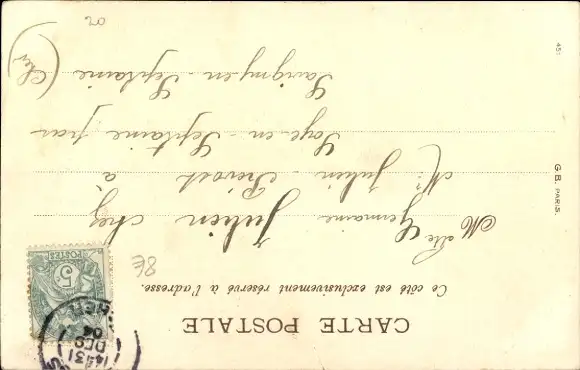 CARTE POSTALE
Ce côté est exclusivement réservé à l'adresse.
8E
POSTES
5c
31
DEC
04
CHER
Melle Germaine Julien chez
Mr Julien - Prévost à
Soye-en-Septaine par
Savigny-en-Septaine (Cher)
G.B. PARIS.
451